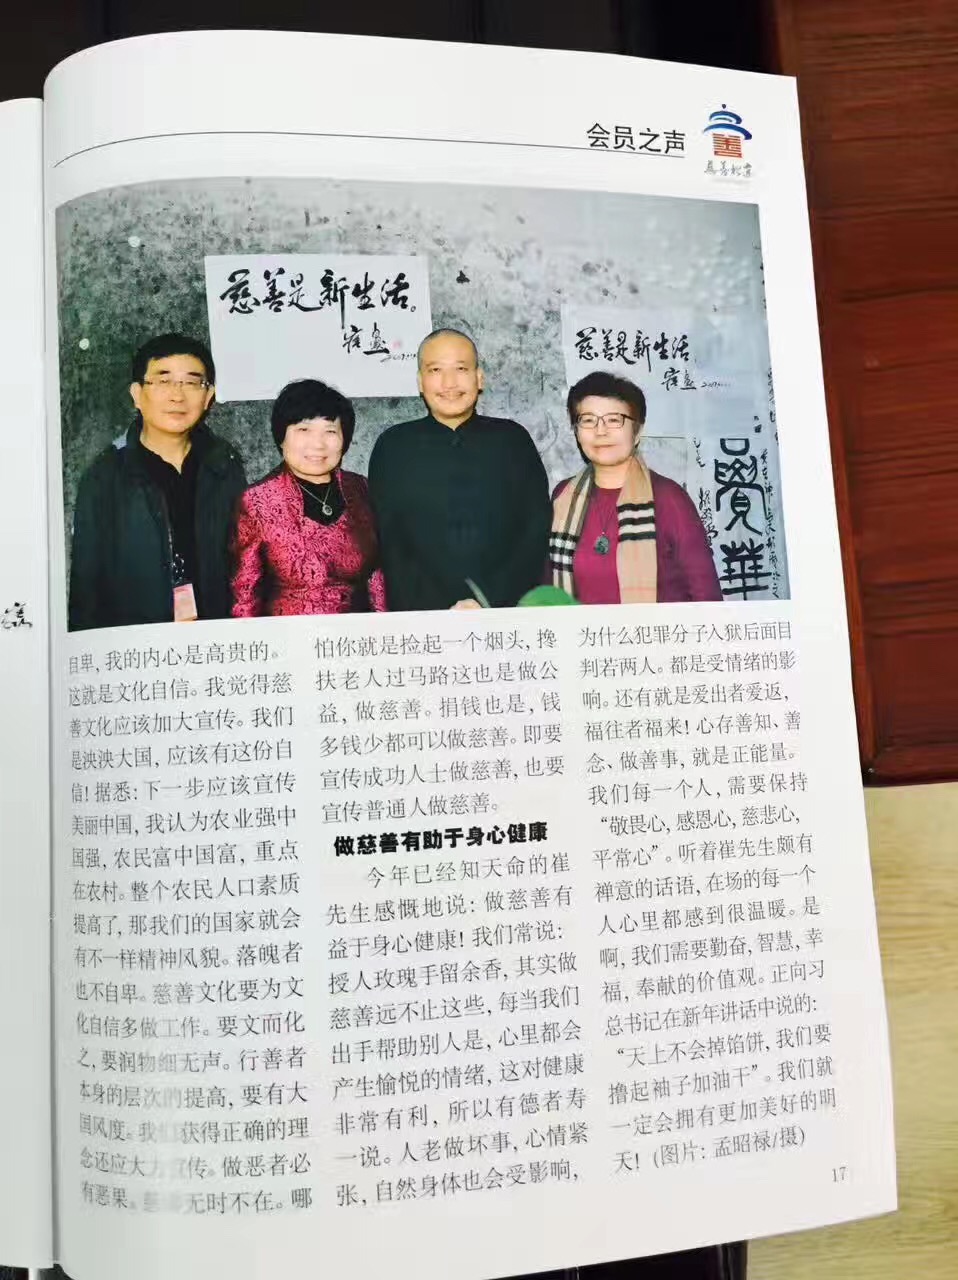 会员之声
慈善
慈善是新生活。
慈善是新生活
覺
華
自卑，我的内心是高贵的。
这就是文化自信。我觉得慈
善文化应该加大宣传。我们
是泱泱大国，应该有这份自
信！据悉：下一步应该宣传
美丽中国，我认为农业强中
国强，农民富中国富，重点
在农村。整个农民人口素质
提高了，那我们的国家就会
有不一样精神风貌。落魄者
也不自卑。慈善文化要为文
化自信多做工作。要文而化
之，要润物细无声。行善者
本身的层次的提高，要有大
国风度。我们获得正确的理
念还应大力宣传。做恶者必
有恶果。慈善无时不在。哪
怕你就是捡起一个烟头，搀
扶老人过马路这也是做公
益，做慈善。捐钱也是，钱
多钱少都可以做慈善。即要
宣传成功人士做慈善，也要
宣传普通人做慈善。
做慈善有助于身心健康
今年已经知天命的崔
先生感慨地说：做慈善有
益于身心健康！我们常说：
授人玫瑰手留余香，其实做
慈善远不止这些，每当我们
出手帮助别人是，心里都会
产生愉悦的情绪，这对健康
非常有利，所以有德者寿
一说。人老做坏事，心情紧
张，自然身体也会受影响，
为什么犯罪分子入狱后面目
判若两人。都是受情绪的影
响。还有就是爱出者爱返，
福往者福来！心存善知、善
念、做善事，就是正能量。
我们每一个人，需要保持
“敬畏心，感恩心，慈悲心，
平常心”。听着崔先生颇有
禅意的话语，在场的每一个
人心里都感到很温暖。是
啊，我们需要勤奋，智慧，幸
福，奉献的价值观。正向习
总书记在新年讲话中说的：
“天上不会掉馅饼，我们要
撸起袖子加油干”。我们就
一定会拥有更加美好的明
天！（图片：孟昭禄/摄）
17